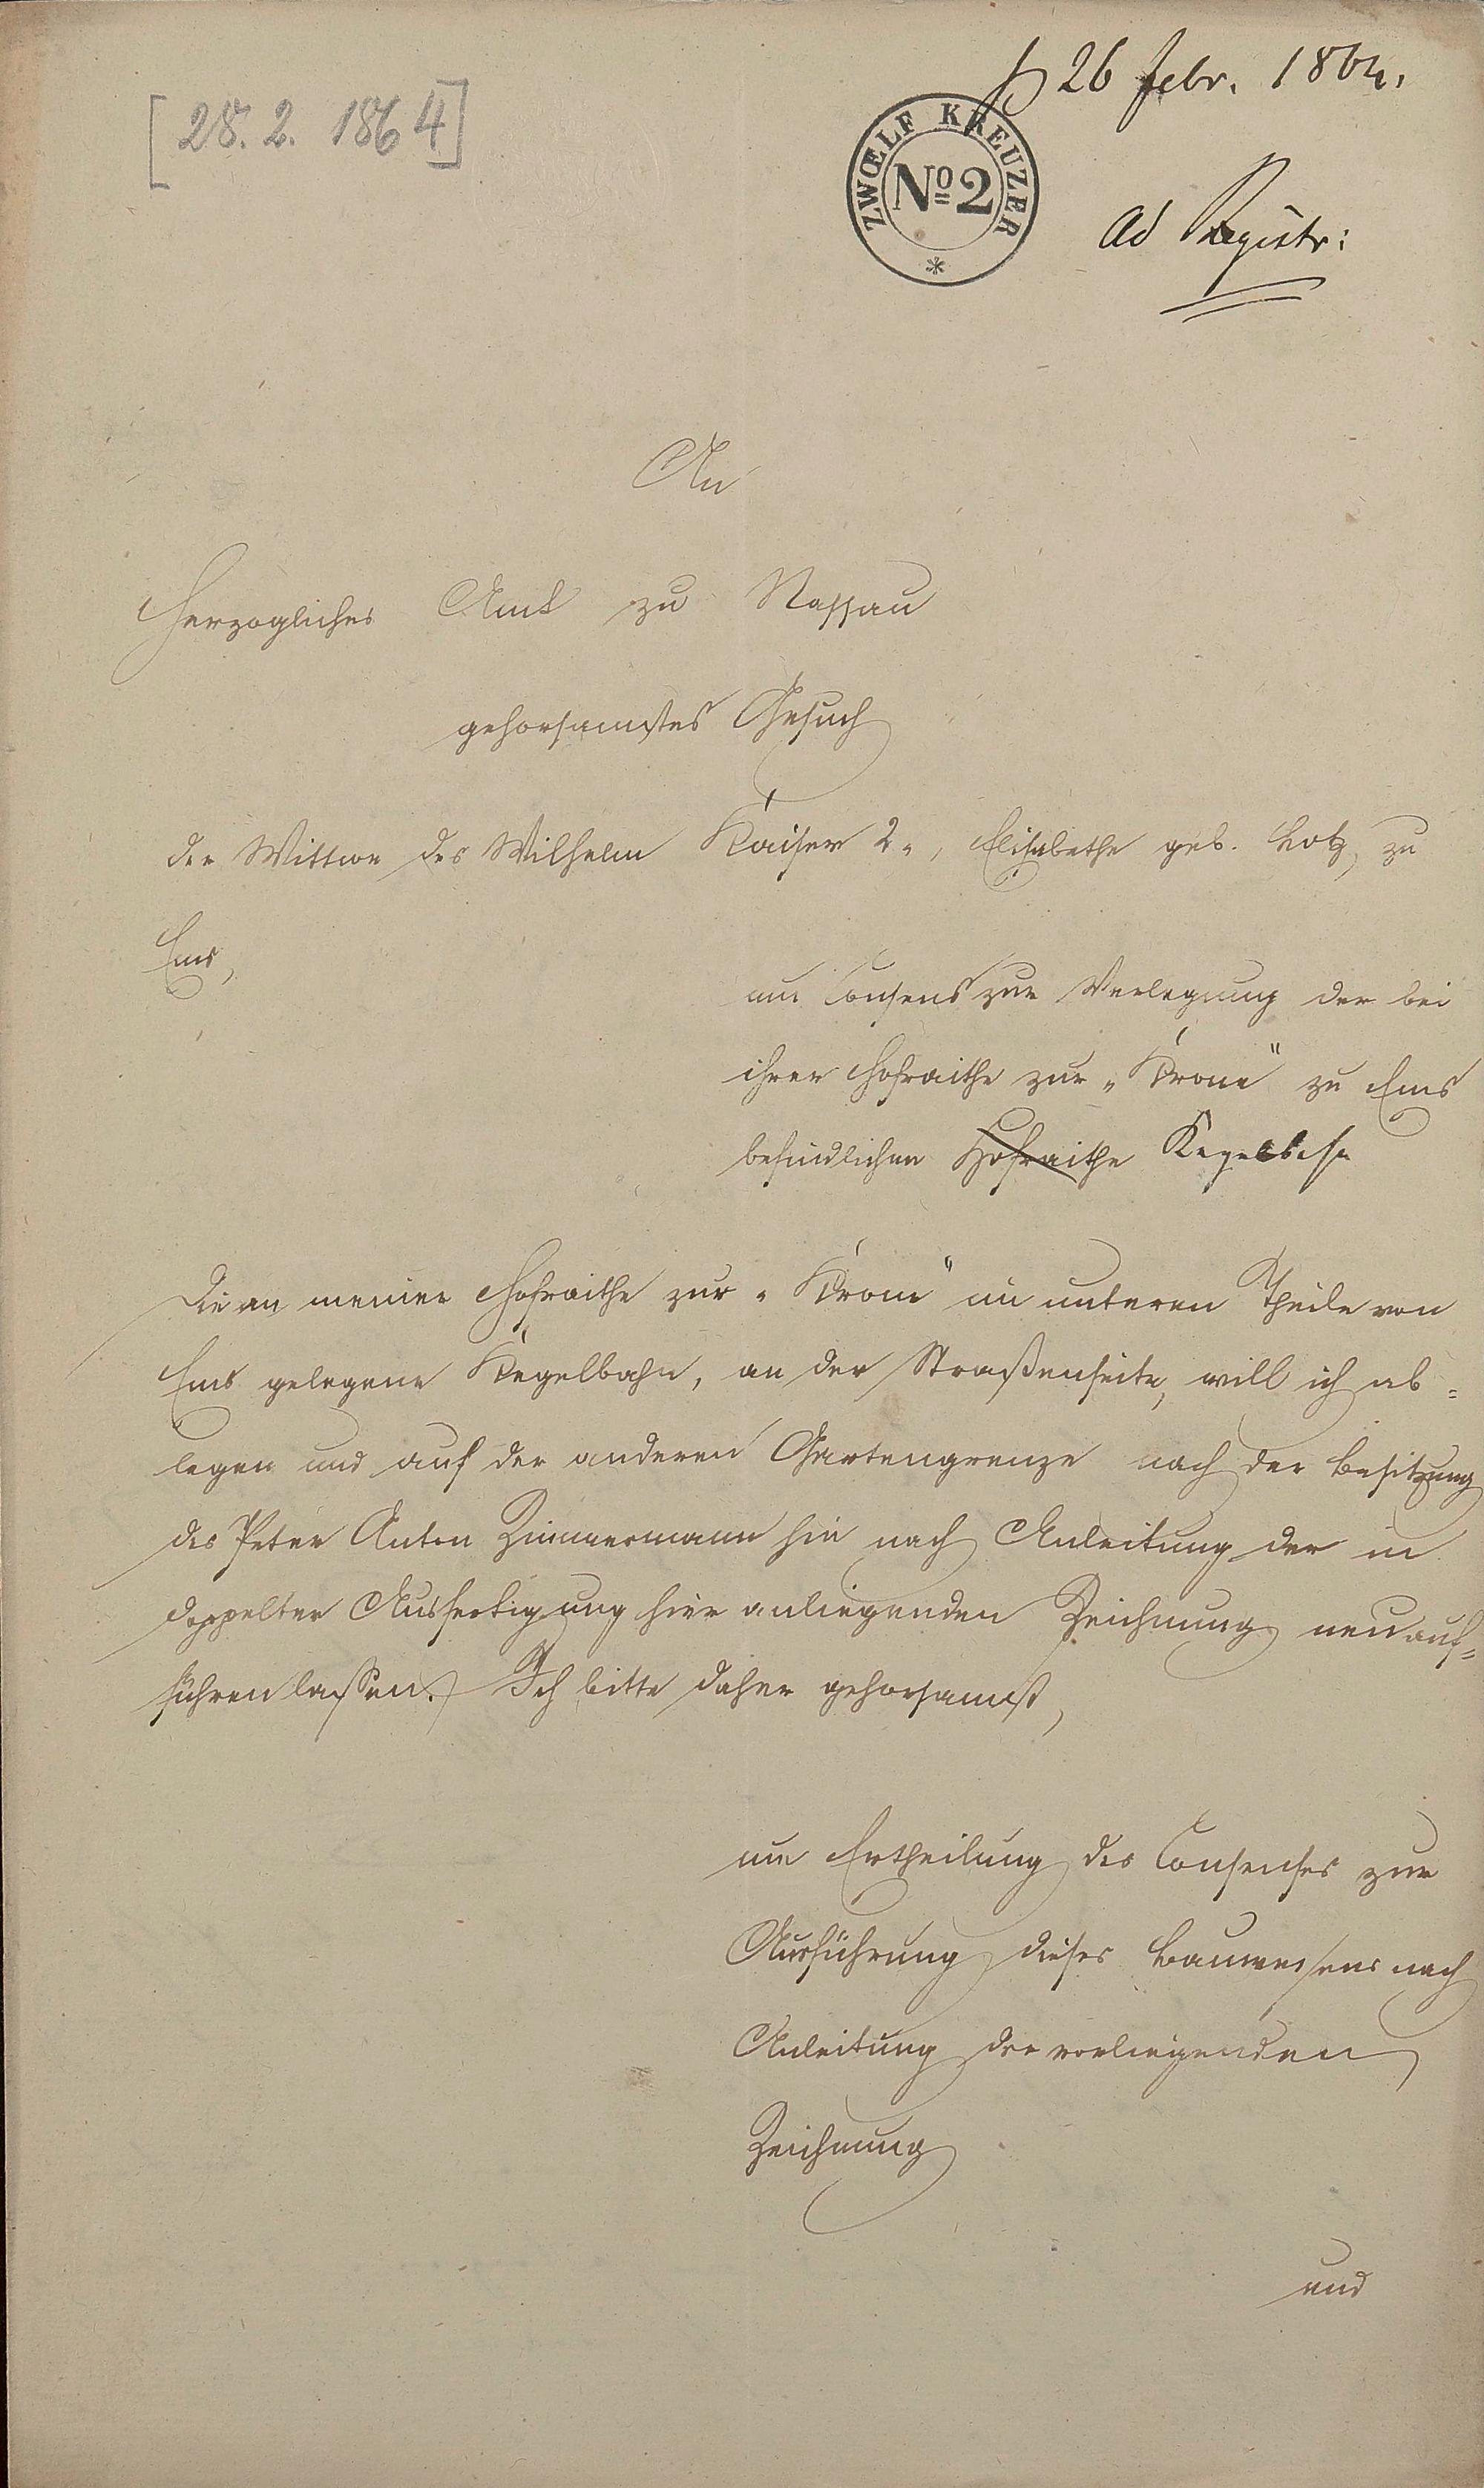 [28. 2. 1864]
26 Febr. 1864.
ZWŒLF KREUZER
No 2
ad Registr:
An
Herzogliches Amt zu Nassau
gehorsamstes Gesuch
der Wittwe des Wilhelm Kaiser 2r, Elisabethe geb. Lotz, zu
Ems,
um Consens zur Verlegung der bei
ihrer Hofraithe zur „Krone" zu Ems
befindlichen Hofraithe Kegelbahn
Die an meiner Hofraithe zur „Krone" im unteren Theile von
Ems gelegene Kegelbahn, an der Straßenseite, will ich ab=
legen und auf der anderen Gartengrenze nach der Besitzung
des Peter Anton Zimmermann hin nach Anleitung der in
doppelter Ausfertigung hier anliegenden Zeichnung neu auf=
führen lassen. Ich bitte daher gehorsamst,
um Ertheilung des Consenses zur
Ausführung dieses Bauwesens nach
Anleitung der vorliegenden
Zeichnung
und